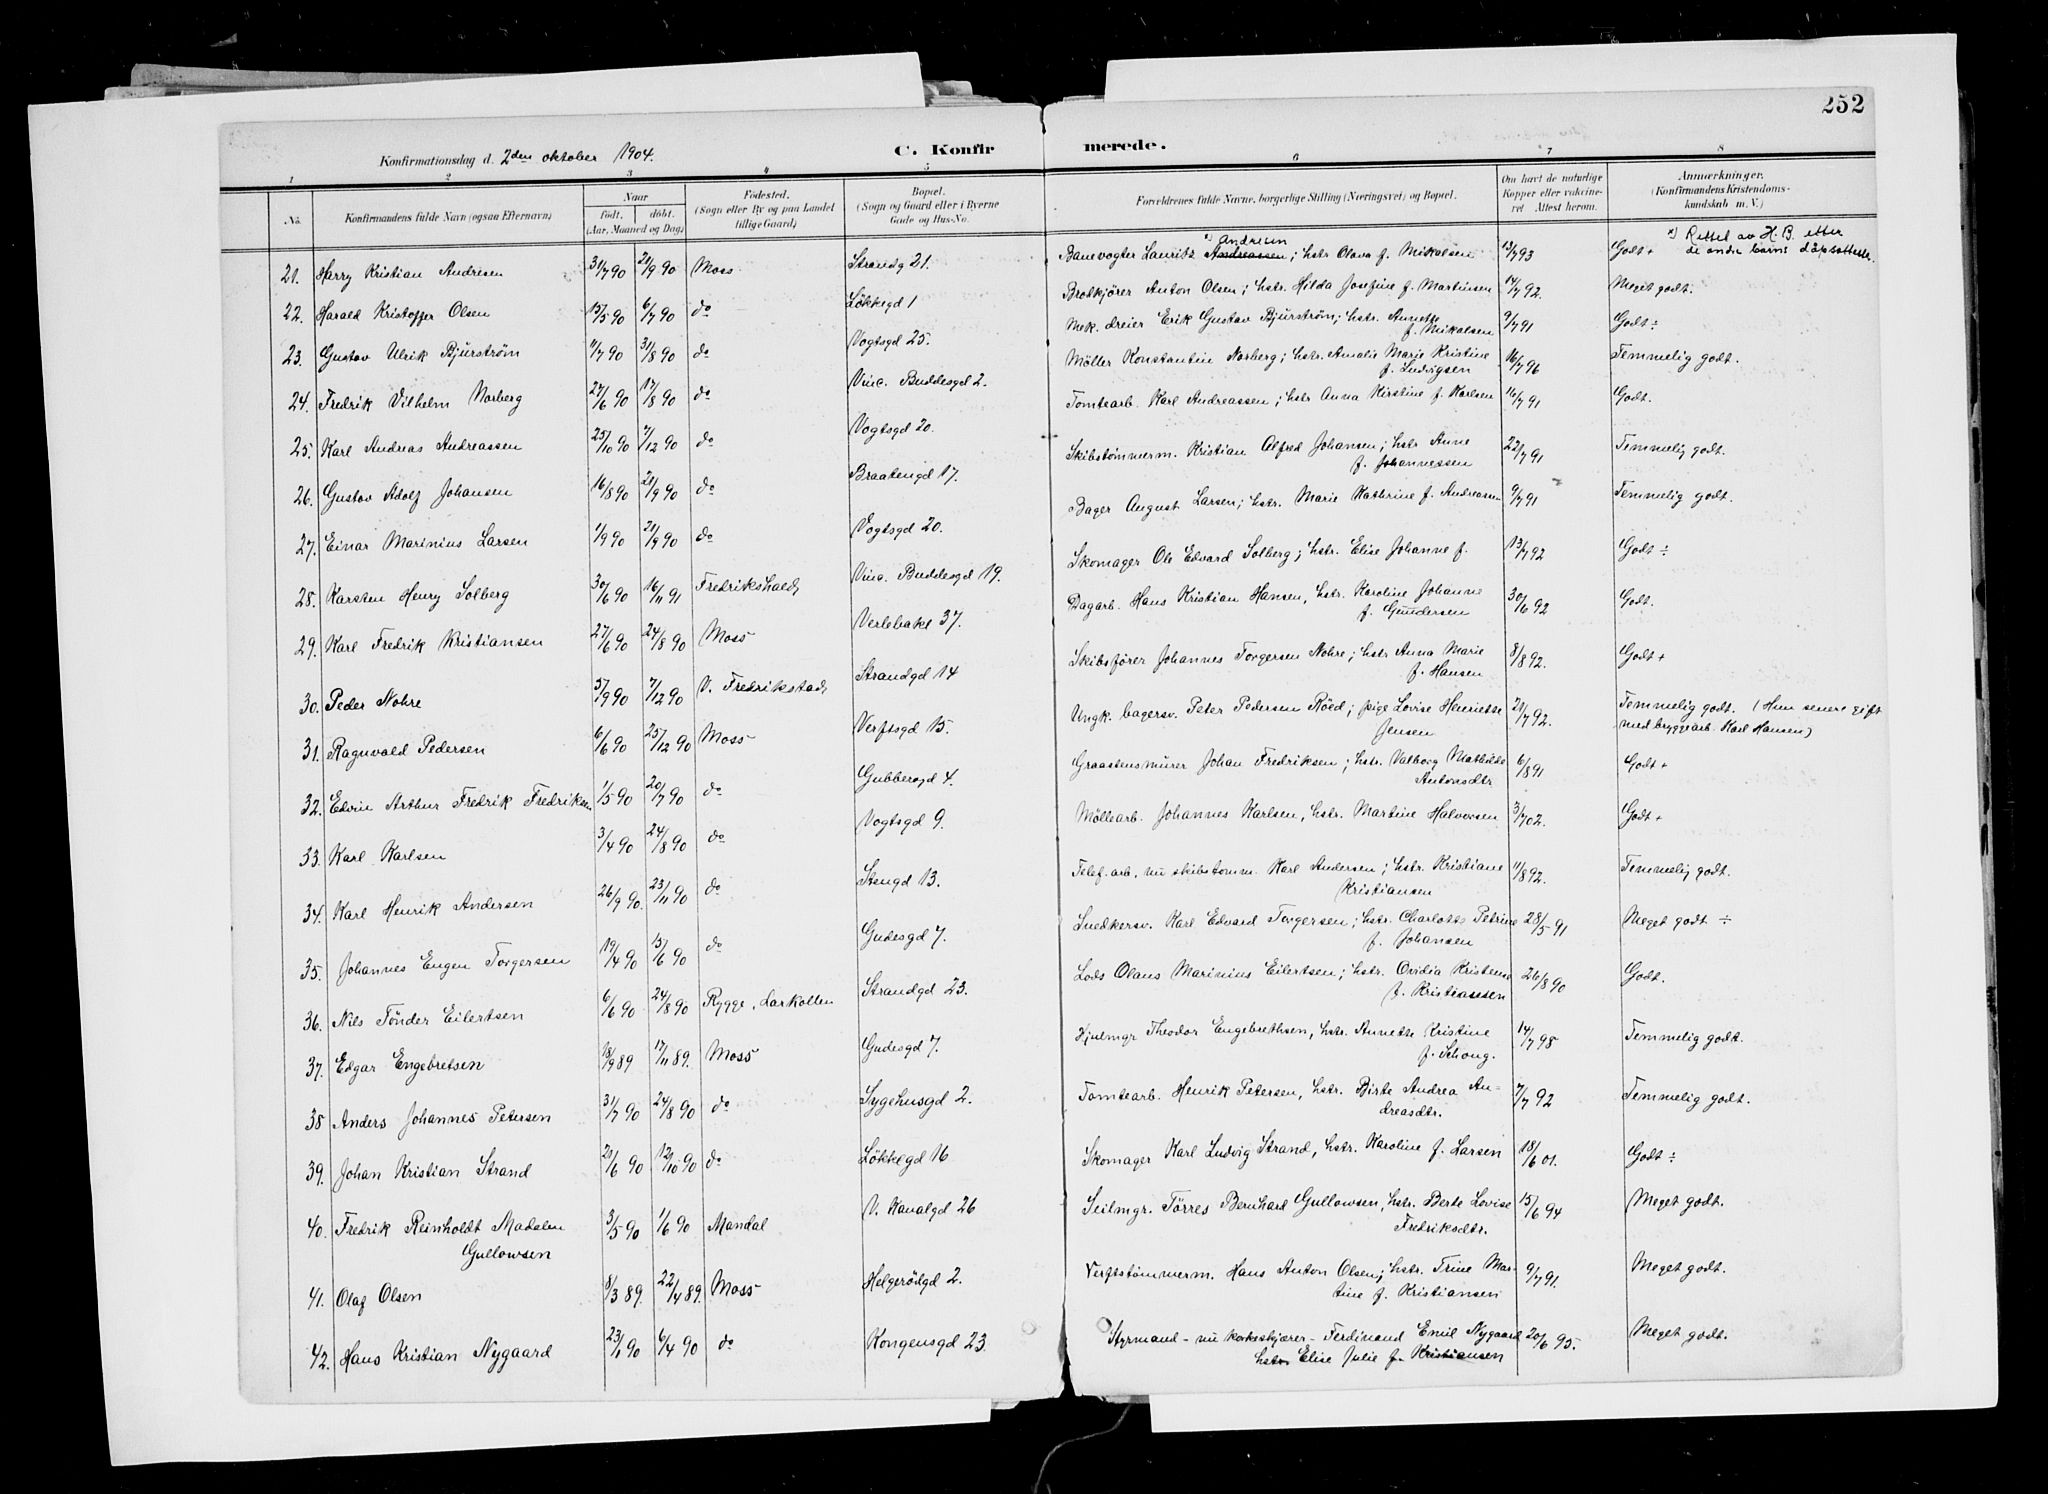 252
Konfirmationsdag d. 2den oktober 1904.
C. Konfirmerede.
1 2 3 4 5 6 7 8
No. Konfirmandens fulde Navn (ogsaa Efternavn) Naar født. døbt. (Aar, Maaned og Dag) Fødested. (Sogn eller By og paa Landet tillige Gaard) Bopæl. (Sogn og Gaard eller i Byerne Gade og Hus-No. Forældrenes fulde Navne, borgerlige Stilling (Næringsvei) og Bopæl. Om havt de naturlige Kopper eller vakcineret Attest herom. Anmærkninger. (Konfirmandens Kristendomskundskab m. V.)
21. Harry Kristian Andresen 31/7 90 21/9 90 Moss Strandg 21. Banevogter Lauritz Andreassen x) Andresen; hstr Olava f. Mikalsen 13/7 93 Godt + x) Rettet av H. B. etter de andre barns dåpsattester.
22. Harald Kristoffer Olsen 15/5 90 6/7 90 do Løkkegd 1 Brødkjører Anton Olsen; hstr. Hilda Josefine f. Martinsen 14/7 92. Meget godt.
23. Gustav Ulrik Bjurström 11/7 90 31/8 90 do Vogtsgd 25. Mek. dreier Erik Gustav Bjurström; hstr. Annette f. Mikalsen 9/7 91 Godt ÷
24. Fredrik Vilhelm Norberg 27/6 90 17/8 90 do Vinc. Buddesgd 2. Møller Konstantin Norberg; hstr. Amalie Marie Kristine f. Ludvigsen 16/7 96 Temmelig godt.
25. Karl Andreas Andreassen 25/10 90 7/12 90 do Vogtsgd 20. Tomtearb. Karl Andreassen; hstr Anna Kirstine f. Karlsen 16/7 91 Godt.
26. Gustav Adolf Johansen 16/8 90 21/9 90 do Braatengd 17. Skibstømmerm. Kristian Alfred Johansen; hstr Anne f. Johannessen 22/7 91 Temmelig godt.
27. Einar Marinius Larsen 1/9 90 21/9 90 do Vogtsgd 20. Bager August Larsen; hstr. Marie Kathrine f. Andreasen 9/7 91 Temmelig godt.
28. Karsten Henry Solberg 30/6 90 16/11 91 Fredrikshald Vinc. Buddesgd 19. Skomager Ole Edvard Solberg; hstr. Elise Johanne f. 13/7 92 Godt ÷
29. Karl Fredrik Kristiansen 27/6 90 24/8 90 Moss Verlebakl 37. Dagarb. Hans Kristian Hansen, hstr. Karoline Johanne f. Gundersen 30/6 92 Godt.
30. Peder Nohre 5/9 90 7/12 90 V. Fredrikstad Strandgd 14 Skibsfører Johannes Torgersen Nohre; hstr Anna Marie f. Hansen 8/8 92. Godt +
31. Ragnvald Pedersen 6/6 90 25/12 90 Moss Verftsgd 15. Ungk. bagersv. Peter Pedersen Röed; pige Lovise Henriette Jensen 21/7 92. Temmelig godt. (Hun senere gift med bryggearb. Karl Hansen)
32. Edvin Arthur Fredrik Fredriksen 1/5 90 20/7 90 do Gubberogd 4. Graastensmurer Johan Fredriksen; hstr. Valborg Mathilde Antonsdtr 6/8 91 Godt +
33. Karl Karlsen 3/4 90 24/8 90 do Vogtsgd 9. Møllearb. Johannes Karlsen, hstr. Martine Halvorsen 3/7 02. Godt +
34. Karl Henrik Andersen 26/9 90. 23/11 90 do Stengd 13. Telef. arb. nu skibstømm. Karl Andersen; hstr. Kristiane Kristiansen 11/8 92. Temmelig godt.
35. Johannes Eugen Torgersen 19/4 90 15/6 90 do Gudesgd 7. Snedkersv. Karl Edvard Torgersen; hstr. Charlotte Petrine f. Johansen 28/5 91 Meget godt ÷
36. Nils Tönder Eilertsen 6/6 90 24/8 90 Rygge, Larkollen Strandgd 23. Lods Olaus Marinius Eilertsen; hstr. Ovidia Kristense f. Kristiansen 26/8 90 Godt.
37. Edgar Engebretsen 18/9 89 17/11 89. Moss Gudesgd 7. Hjulmgr Theodor Engebrethsen, hstr. Annette Kristine f. Schoug. 14/7 98 Temmelig godt.
38 Anders Johannes Petersen 31/7 90 24/8 90 do Sygehusgd 2. Tomtearb. Henrik Petersen, hstr. Birte Andrea Andreasdtr. 7/7 92 Temmelig godt.
39. Johan Kristian Strand 21/6 90 12/10 90 do Løkkegd 16 Skomager Karl Ludvig Strand, hstr. Karoline f. Larsen 18/6 01. Godt ÷
40. Fredrik Reinholdt Madsen Gullowsen 3/5 90 1/6 90 Mandal V. Kanalgd 26 Seilmgr. Törres Bernhard Gullowsen, hstr. Berte Lovise Fredriksdtr. 15/6 94 Meget godt.
41. Olaf Olsen 8/3 89. 22/4 89. Moss Helgerödgd 2. Verftstømmerm. Hans Anton Olsen; hstr. Trine Martine f. Kristiansen 9/7 91. Meget godt.
42. Hans Kristian Nygaard 23/1 90 6/4 90 do Kongensgd 23. Styrmand - nu korkskjærer - Ferdinand Emil Nygaard hstr Elise Julie f. Kristiansen 20/6 95. Meget godt.